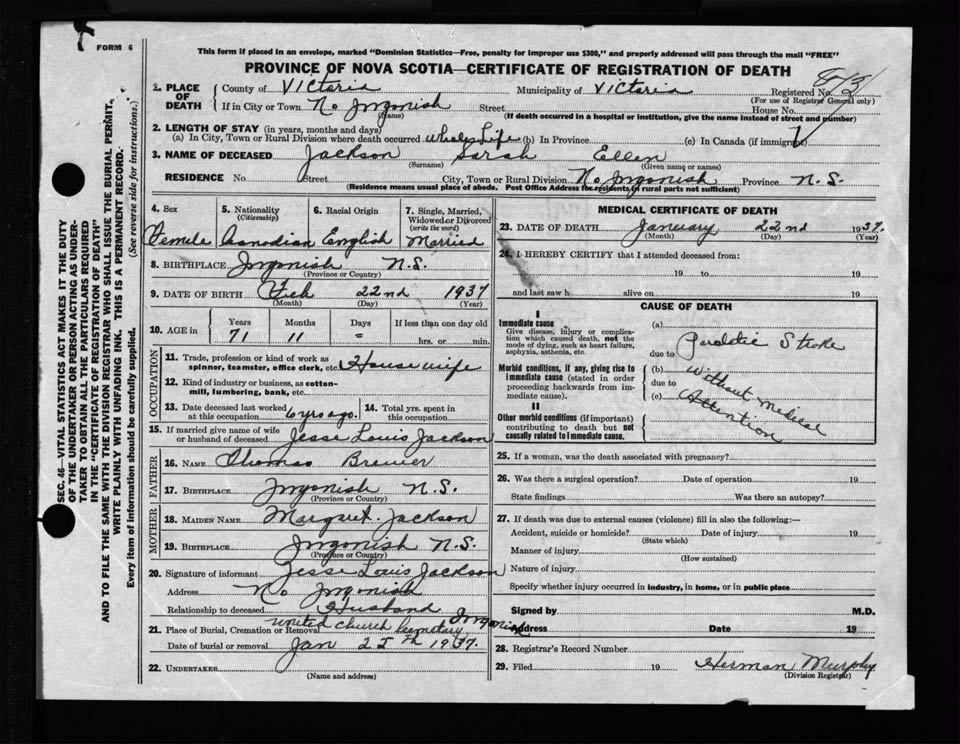 FORM 6
This form if placed in an envelope, marked "Dominion Statistics—Free, penalty for improper use $300," and properly addressed will pass through the mail "FREE"
PROVINCE OF NOVA SCOTIA—CERTIFICATE OF REGISTRATION OF DEATH
1. PLACE OF DEATH County of Victoria Municipality of Victoria Registered No.
(For use of Registrar General only)
If in City or Town No Ingonish Street House No.
(Name) (If death occurred in a hospital or institution, give the name instead of street and number)
2. LENGTH OF STAY (in years, months and days)
(a) In City, Town or Rural Division where death occurred Whole Life (b) In Province (c) In Canada (if immigrant)
3. NAME OF DECEASED Jackson Sarah Ellen
(Surname) (Given name or names)
RESIDENCE No. Street City, Town or Rural Division No Ingonish Province N.S.
(Residence means usual place of abode. Post Office Address for residents in rural parts not sufficient)
4. Sex 5. Nationality (Citizenship) 6. Racial Origin 7. Single, Married, Widowed or Divorced (write the word)
Female Canadian English Married
8. BIRTHPLACE Ingonish N.S.
(Province or Country)
9. DATE OF BIRTH Feb 22nd 1937
(Month) (Day) (Year)
10. AGE in Years Months Days If less than one day old
71 11 = hrs. or min.
OCCUPATION
11. Trade, profession or kind of work as spinner, teamster, office clerk, etc. Housewife
12. Kind of industry or business, as cotton-mill, lumbering, bank, etc.
13. Date deceased last worked at this occupation 6 yrs ago. 14. Total yrs. spent in this occupation
15. If married give name of wife or husband of deceased Jesse Louis Jackson
FATHER
16. NAME Thomas Brewer
17. BIRTHPLACE Ingonish N.S.
(Province or Country)
MOTHER
18. MAIDEN NAME Margaret Jackson
19. BIRTHPLACE Ingonish N.S.
(Province or Country)
20. Signature of informant Jesse Louis Jackson
Address No Ingonish
Relationship to deceased Husband
21. Place of Burial, Cremation or Removal United Church Cemetary Ingonish
Date of burial or removal Jan 25th 1937.
22. UNDERTAKER
(Name and address)
MEDICAL CERTIFICATE OF DEATH
23. DATE OF DEATH January 22nd 1937.
(Month) (Day) (Year)
24. I HEREBY CERTIFY that I attended deceased from:
19 to 19
and last saw h alive on 19
CAUSE OF DEATH
I
Immediate cause
Give disease, injury or complication which caused death, not the mode of dying, such as heart failure, asphyxia, asthenia, etc.
(a) Paraletic Stroke
due to
Morbid conditions, if any, giving rise to immediate cause (stated in order proceeding backwards from immediate cause).
(b) Without Medical
due to
(c) Attention
II
Other morbid conditions (if important) contributing to death but not causally related to immediate cause.
25. If a woman, was the death associated with pregnancy?
26. Was there a surgical operation? Date of operation 19
State findings Was there an autopsy?
27. If death was due to external causes (violence) fill in also the following:—
Accident, suicide or homicide? Date of injury 19
(State which)
Manner of injury
(How sustained)
Nature of injury
Specify whether injury occurred in industry, in home, or in public place
Signed by M.D.
Address Date 19
28. Registrar's Record Number
29. Filed 19 Herman Murphy
(Division Registrar)
SEC. 46—VITAL STATISTICS ACT MAKES IT THE DUTY
OF THE UNDERTAKER OR PERSON ACTING AS UNDER-
TAKER TO OBTAIN ALL THE PARTICULARS REQUIRED
IN THE "CERTIFICATE OF REGISTRATION OF DEATH"
AND TO FILE THE SAME WITH THE DIVISION REGISTRAR WHO SHALL ISSUE THE BURIAL PERMIT.
WRITE PLAINLY WITH UNFADING INK. THIS IS A PERMANENT RECORD.
Every item of information should be carefully supplied. (See reverse side for instructions.)